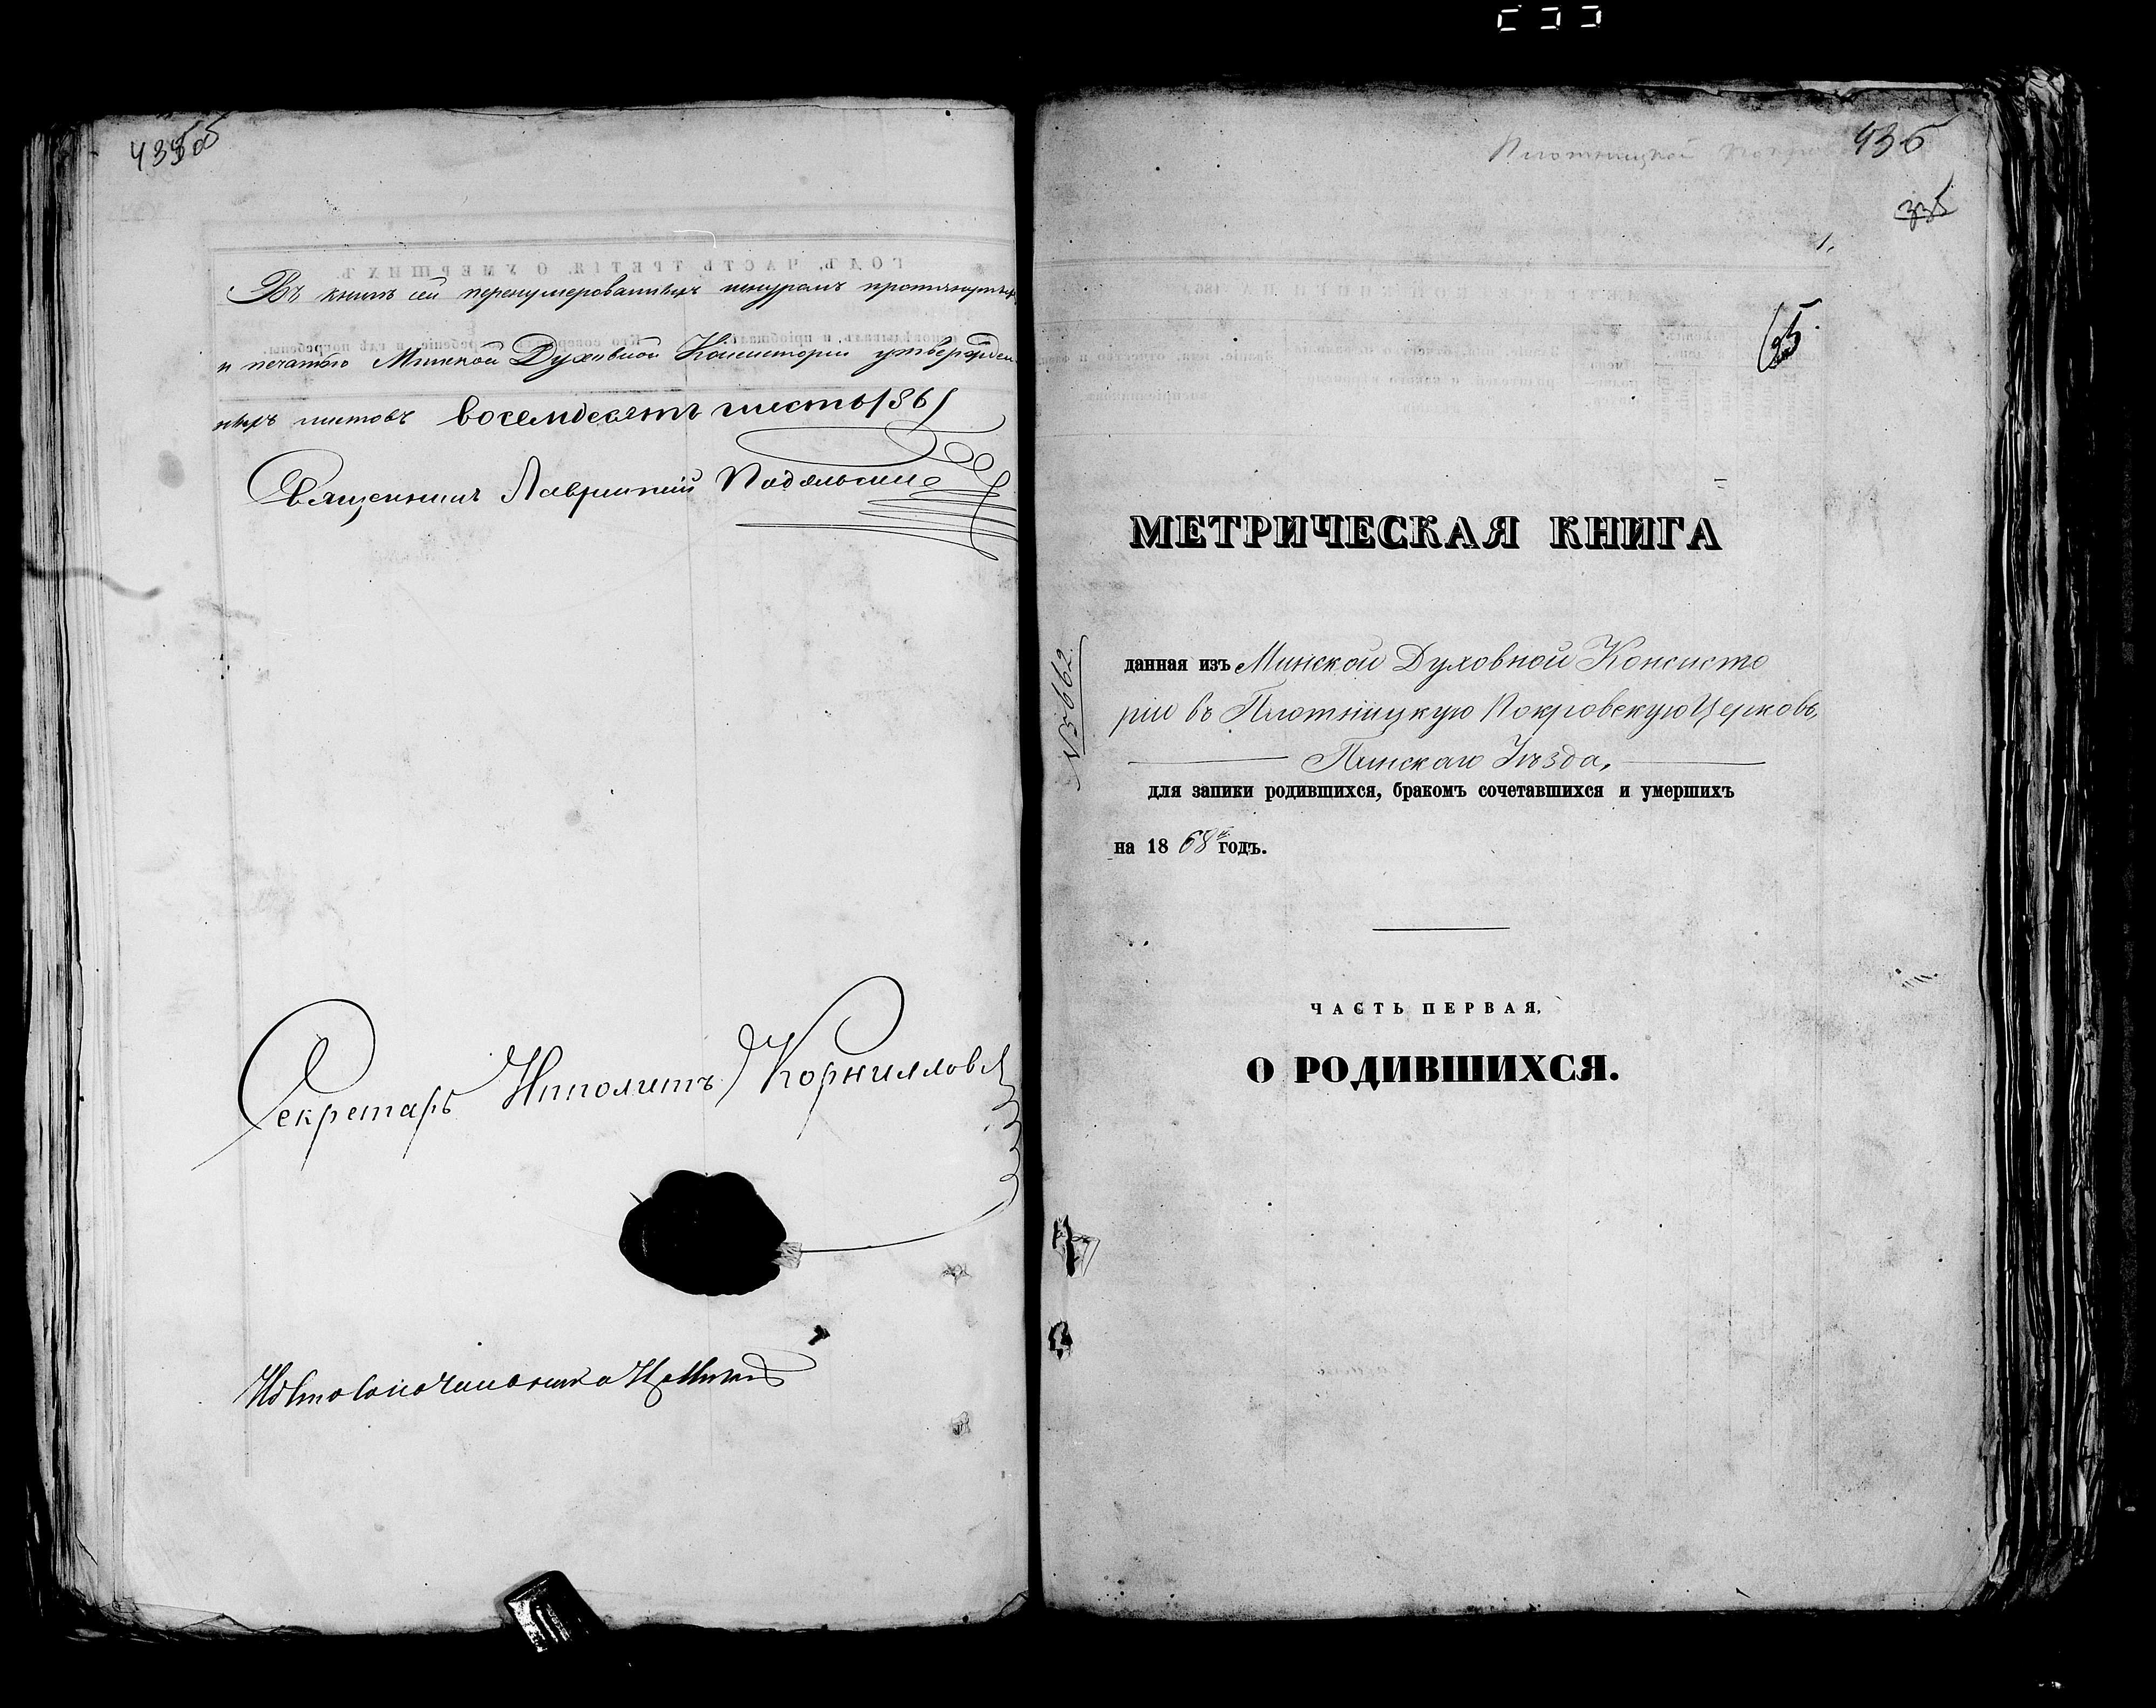 Въ книгѣ сей перенумерованныхъ шнуромъ
и печатью Минской Духовной Консисторіи утвержден
ныхъ листовъ восемдесятъ шесть /86/
Священникъ Лаврентій
Секретарь Ипполитъ Корнилловъ
436
1.
МЕТРИЧЕСКАЯ КНИГА
№ 5662
данная изъ Минской Духовной Консисто
ріи въ Плотницкую Покровскую Церковь,
Пинскаго Уѣзда,
для запики родившихся, бракомъ сочетавшихся и умершихъ
на 1868й годъ.
ЧАСТЬ ПЕРВАЯ.
О РОДИВШИХСЯ.